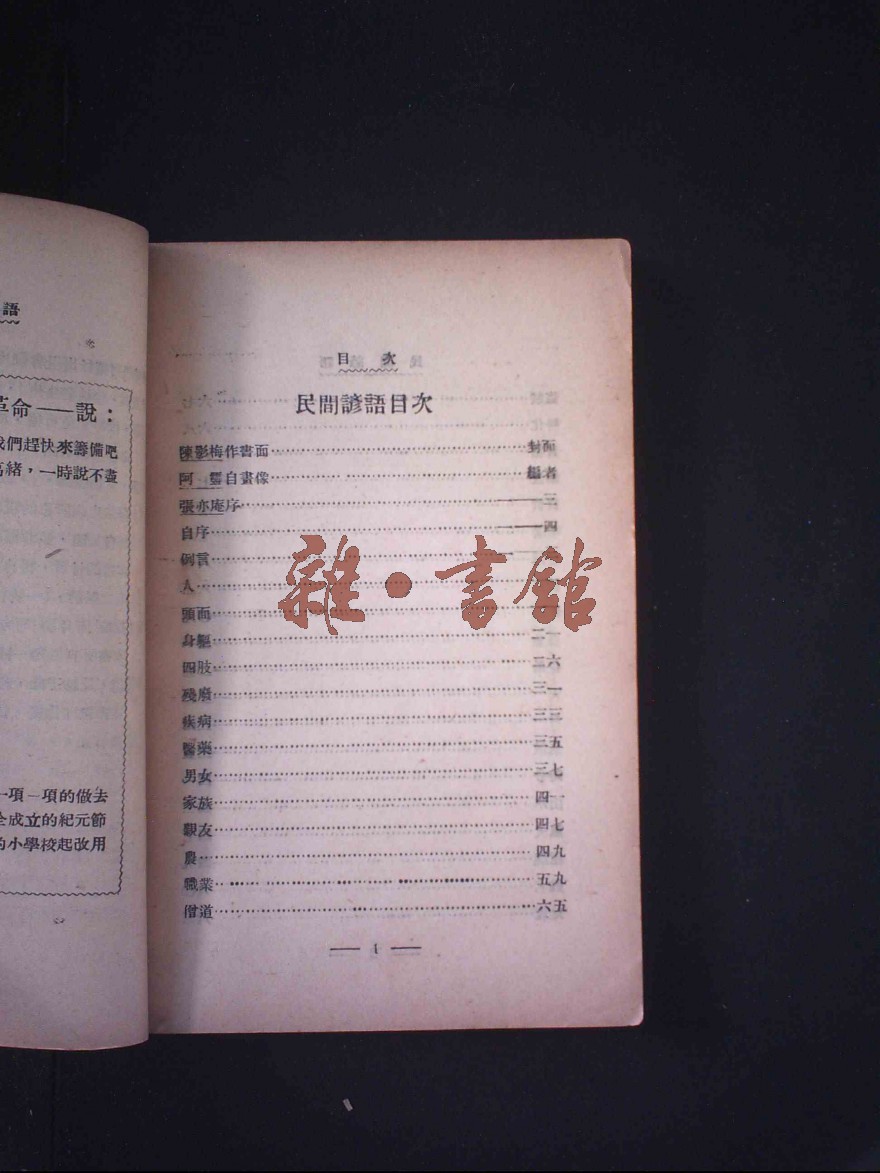 語
革命——說：
我們趕快來籌備吧
萬緒，一時說不盡
一項一項的做去
全成立的紀元節
的小學校起改用
目 次
民間諺語目次
陳影梅作書面……封面
阿靈自畫像……編者
張亦庵序……一——三
自序……一——四
例言……
人……
頭面……
身軀……二一
四肢……二六
殘廢……三一
疾病……三三
醫藥……三五
男女……三七
家族……四一
親友……四七
農……四九
職業……五九
僧道……六五
— 1 —
雜·書館